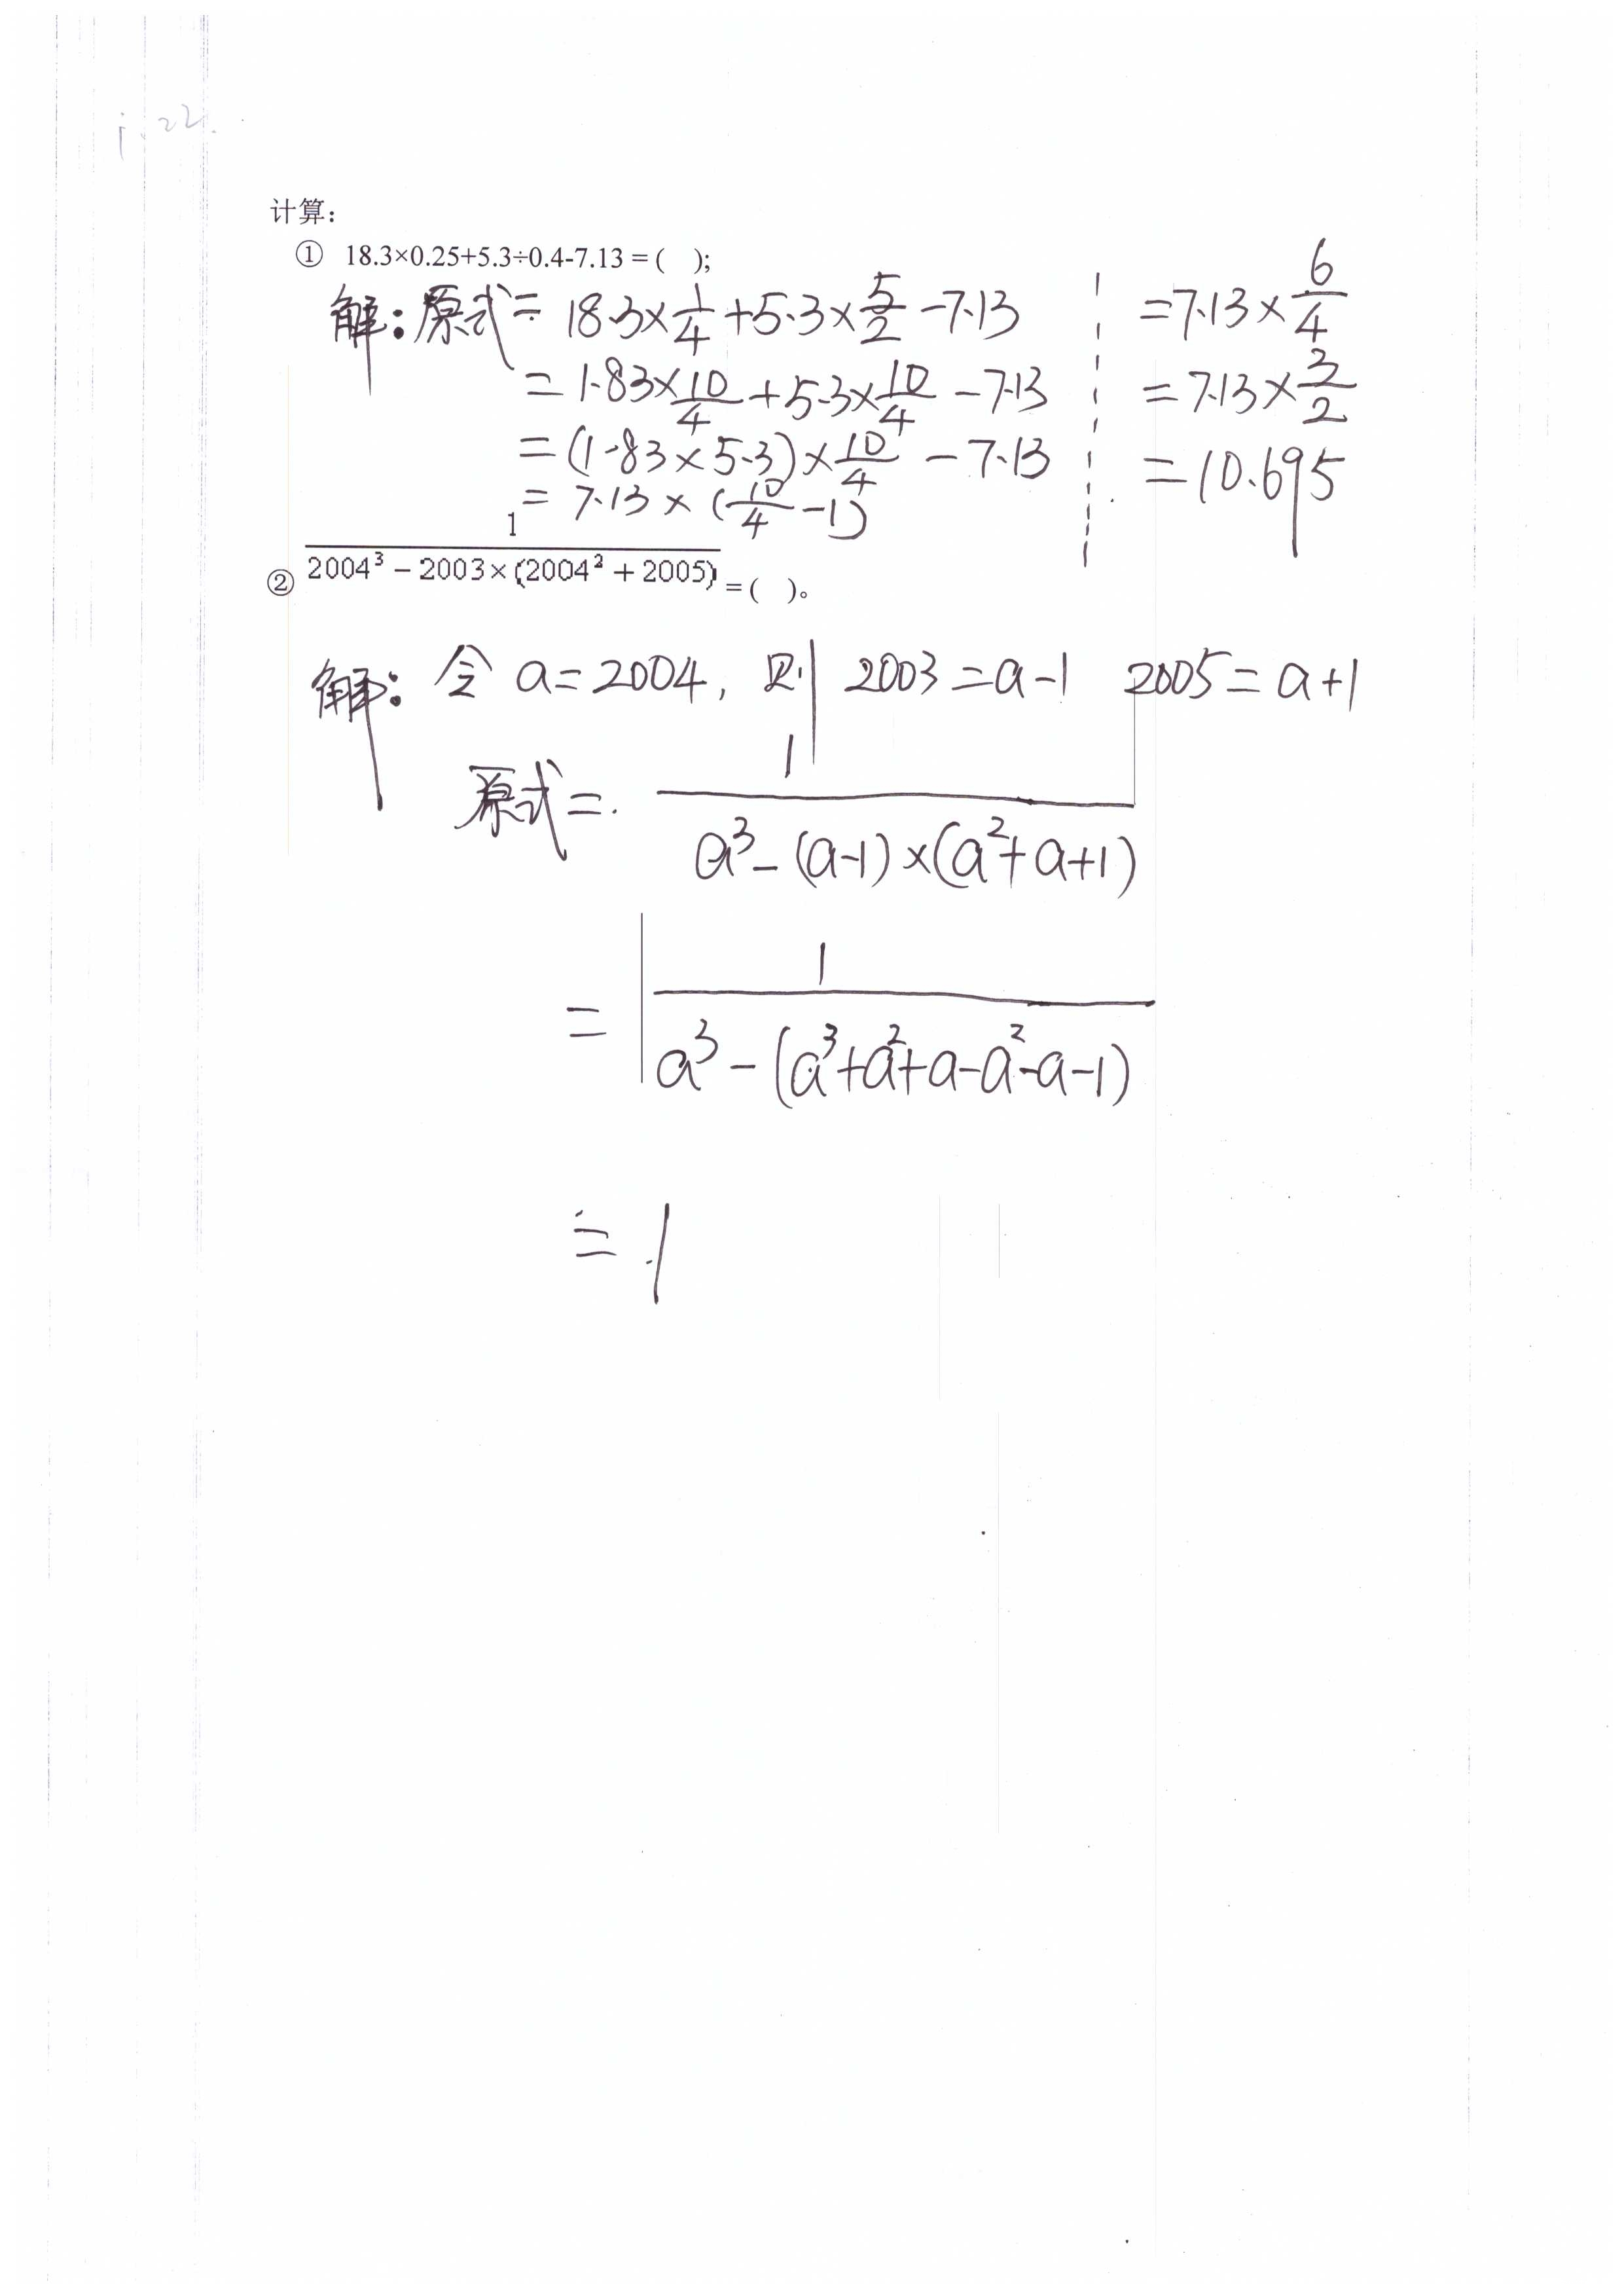 计算：
① 18.3×0.25+5.3÷0.4-7.13 = (   );
解：原式 = 18.3×1/4+5.3×5/2-7.13
= 1.83×10/4+5.3×10/4-7.13
= (1.83×5.3)×10/4-7.13
= 7.13×(10/4-1)
= 7.13×6/4
= 7.13×3/2
= 10.695
② 1/(2004³-2003×(2004²+2005)) = (   )。
解：令 a=2004，则 2003=a-1 2005=a+1
原式 = 1/(a³-(a-1)×(a²+a+1))
= 1/(a³-(a³+a²+a-a²-a-1))
= 1